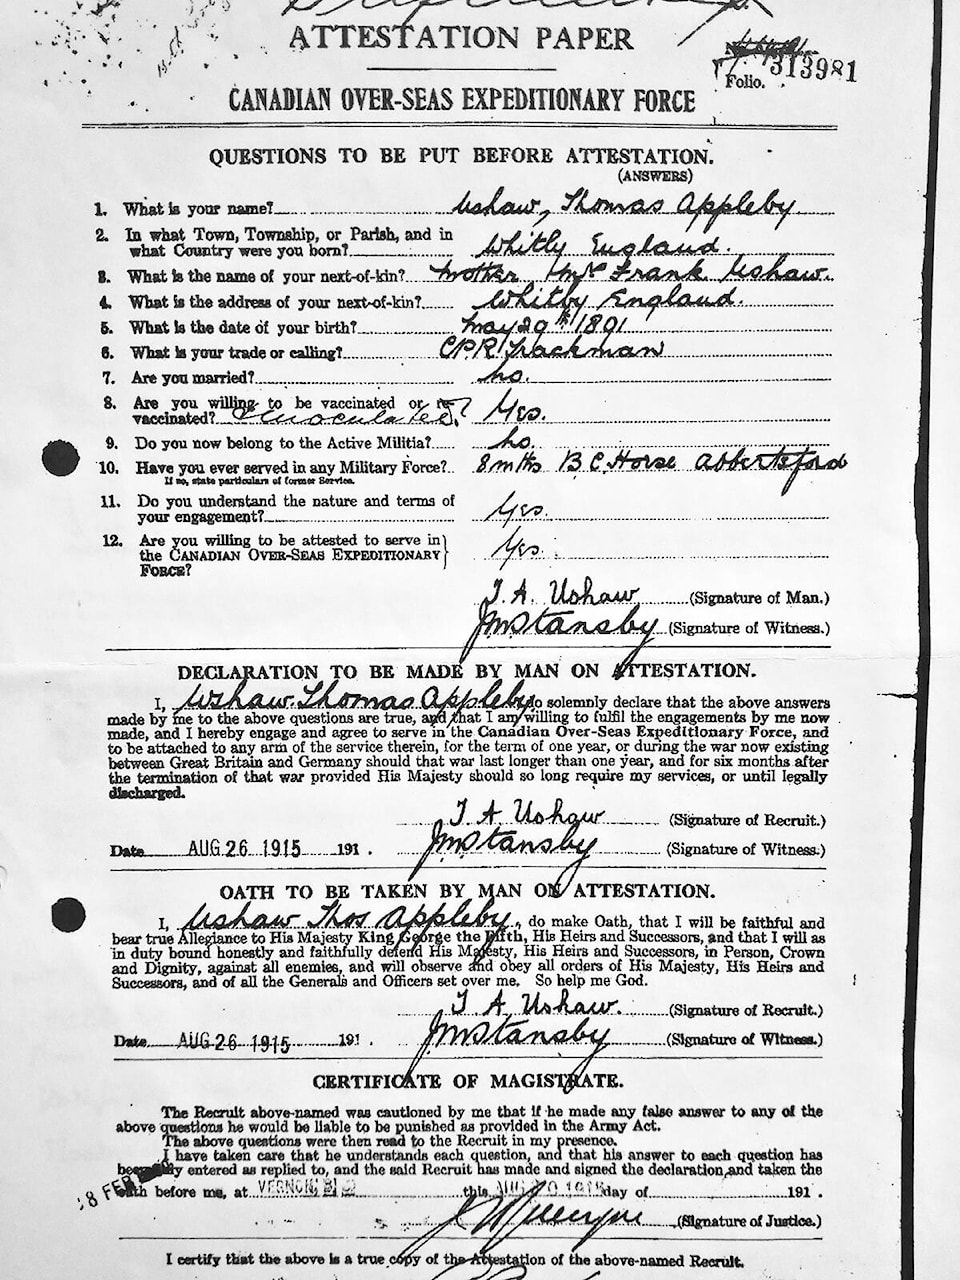 ATTESTATION PAPER
Folio. 313981
CANADIAN OVER-SEAS EXPEDITIONARY FORCE
QUESTIONS TO BE PUT BEFORE ATTESTATION.
(ANSWERS)
1. What is your name? Ushaw, Thomas Appleby
2. In what Town, Township, or Parish, and in
what Country were you born? Whitby England.
3. What is the name of your next-of-kin? Mother Mrs Frank Ushaw.
4. What is the address of your next-of-kin? Whitby England.
5. What is the date of your birth? May 29th 1891
6. What is your trade or calling? CPR Trackman
7. Are you married? no.
8. Are you willing to be vaccinated or re-
vaccinated? & inoculated? Yes.
9. Do you now belong to the Active Militia? no.
10. Have you ever served in any Military Force? 8 mths B C Horse Abbertsford
If so, state particulars of former Service.
11. Do you understand the nature and terms of
your engagement? Yes.
12. Are you willing to be attested to serve in
the CANADIAN OVER-SEAS EXPEDITIONARY
FORCE? Yes.
T. A. Ushaw (Signature of Man.)
JM Stansby (Signature of Witness.)
DECLARATION TO BE MADE BY MAN ON ATTESTATION.
I, Ushaw Thomas Appleby, do solemnly declare that the above answers
made by me to the above questions are true, and that I am willing to fulfil the engagements by me now
made, and I hereby engage and agree to serve in the Canadian Over-Seas Expeditionary Force, and
to be attached to any arm of the service therein, for the term of one year, or during the war now existing
between Great Britain and Germany should that war last longer than one year, and for six months after
the termination of that war provided His Majesty should so long require my services, or until legally
discharged.
T. A. Ushaw (Signature of Recruit.)
Date AUG 26 1915 191 . JM Stansby (Signature of Witness.)
OATH TO BE TAKEN BY MAN ON ATTESTATION.
I, Ushaw Thos Appleby, do make Oath, that I will be faithful and
bear true Allegiance to His Majesty King George the Fifth, His Heirs and Successors, and that I will as
in duty bound honestly and faithfully defend His Majesty, His Heirs and Successors, in Person, Crown
and Dignity, against all enemies, and will observe and obey all orders of His Majesty, His Heirs and
Successors, and of all the Generals and Officers set over me. So help me God.
T. A. Ushaw. (Signature of Recruit.)
Date AUG 26 1915 191 . JM Stansby (Signature of Witness.)
CERTIFICATE OF MAGISTRATE.
The Recruit above-named was cautioned by me that if he made any false answer to any of the
above questions he would be liable to be punished as provided in the Army Act.
The above questions were then read to the Recruit in my presence.
I have taken care that he understands each question, and that his answer to each question has
been duly entered as replied to, and the said Recruit has made and signed the declaration and taken the
8 FEB
oath before me, at VERNON, B C this AUG 1915 day of 191 .
(Signature of Justice.)
I certify that the above is a true copy of the Attestation of the above-named Recruit.